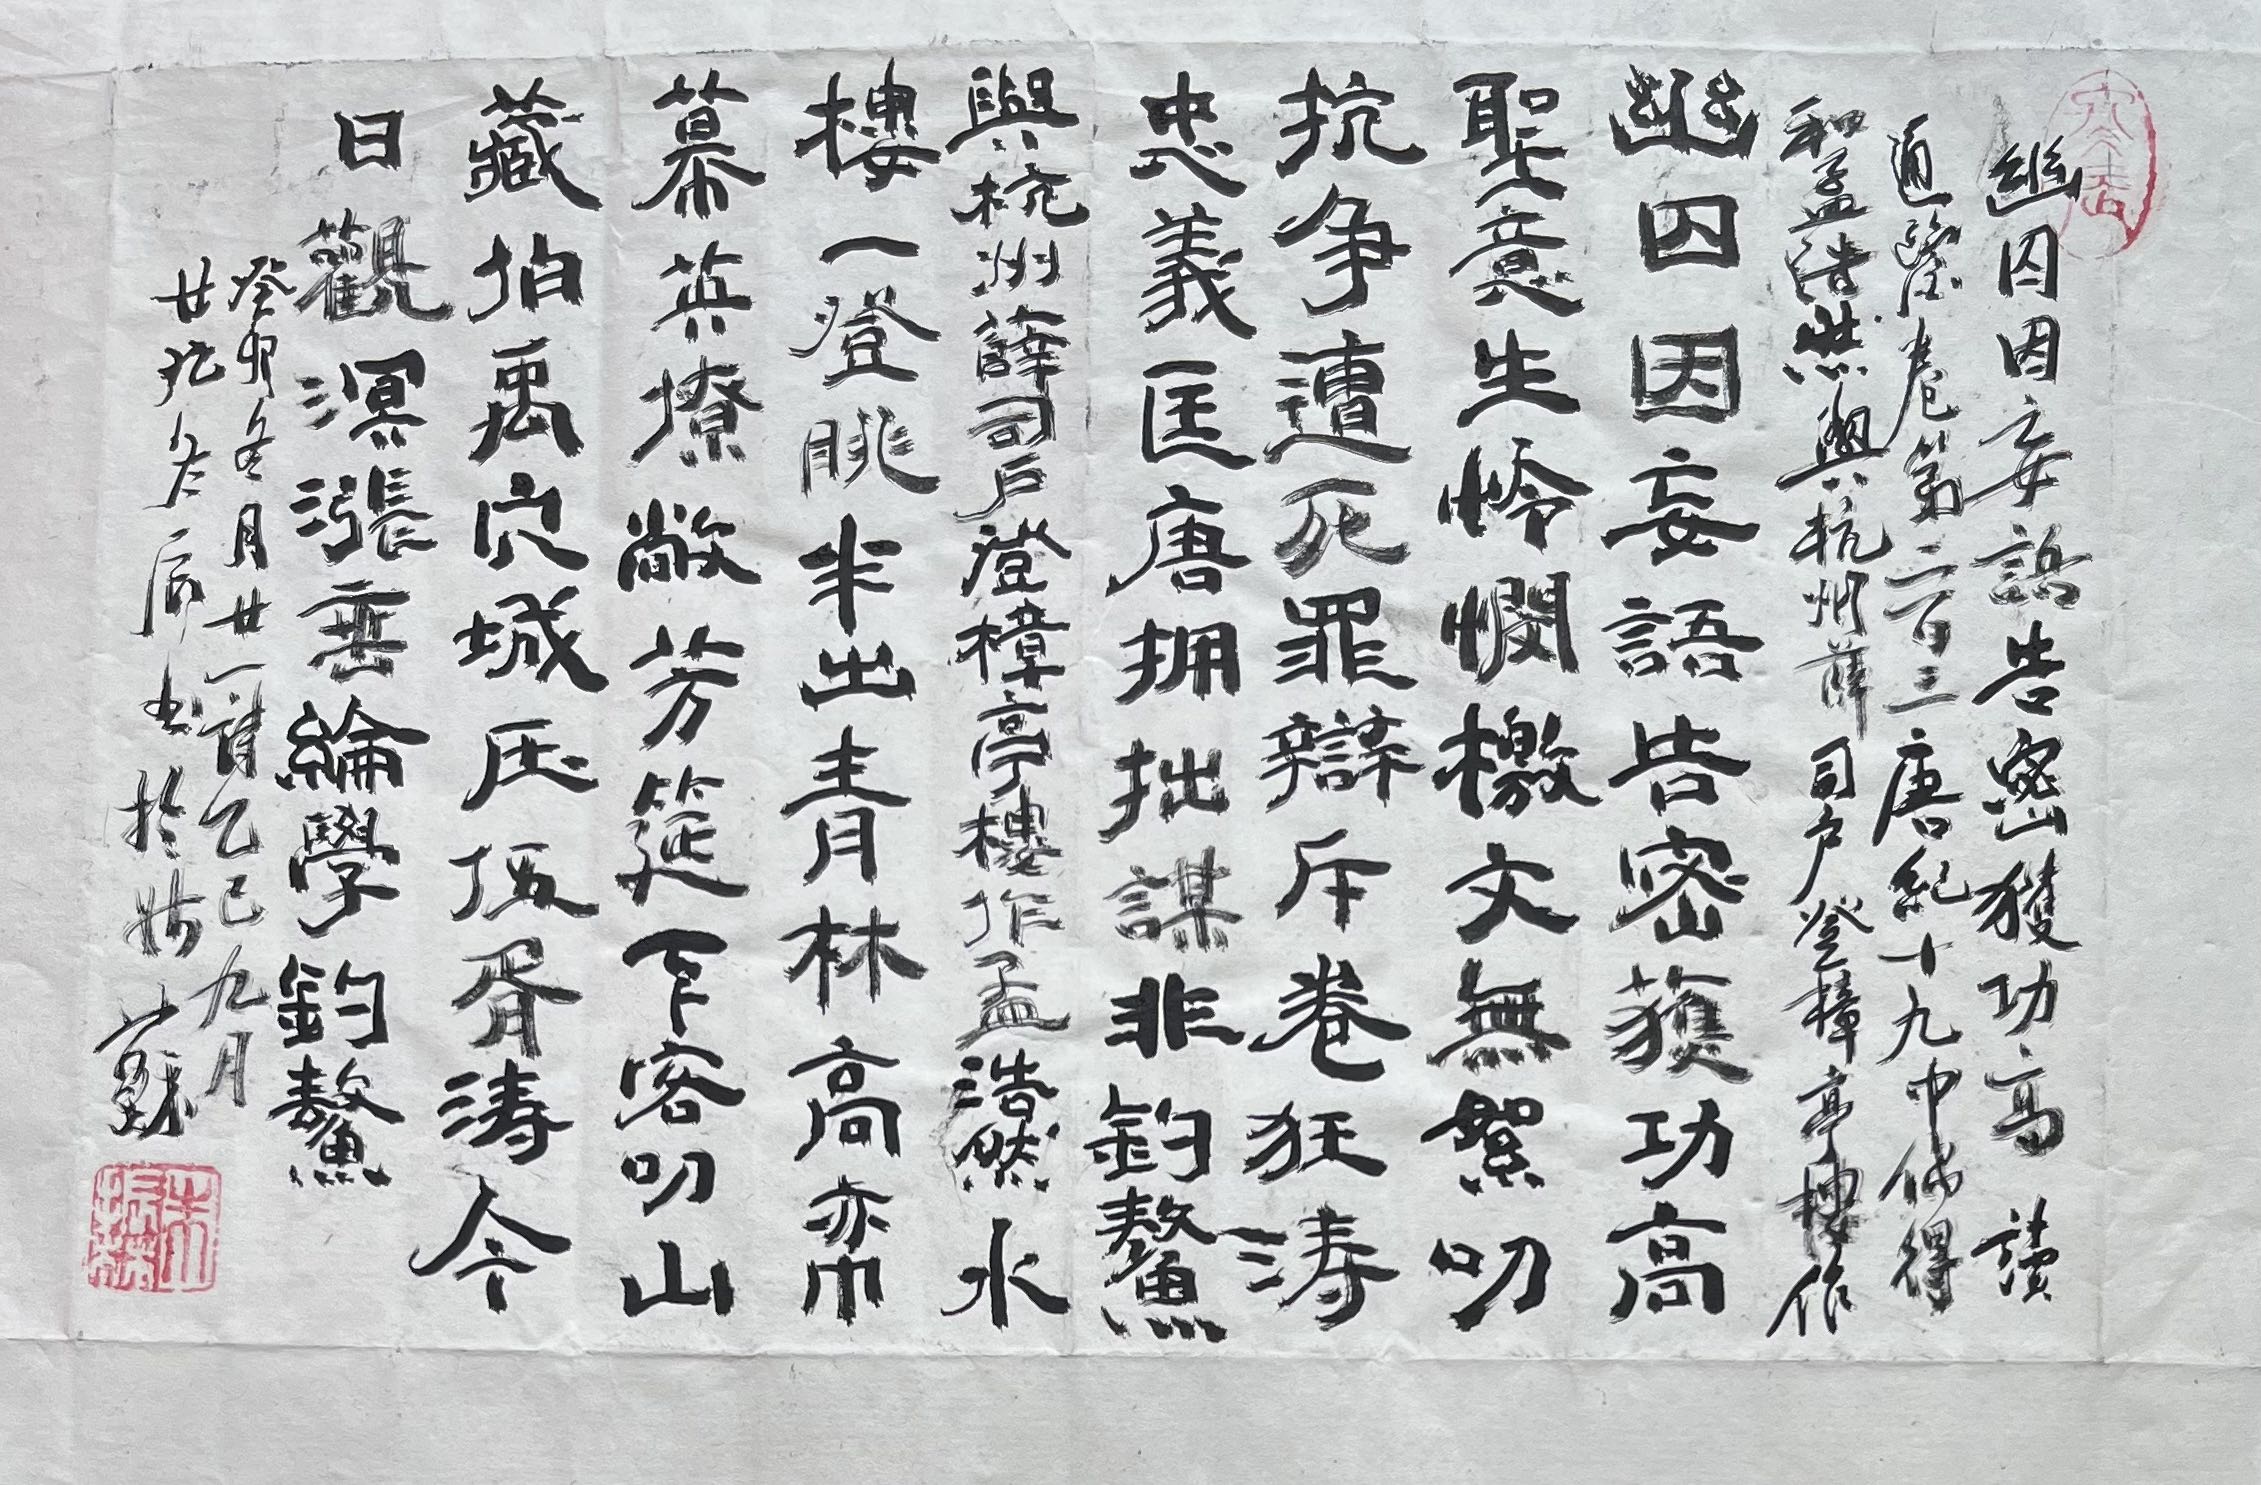 幽囚因妄語告密獲功高 讀
通鑒卷第二百三唐紀十九中偶得
和孟浩然與杭州薛司户登樟亭樓作
幽囚因妄語告密獲功高
聖意生憐憫檄文無絮叨
抗争遭死罪辯斥卷狂涛
忠義匡唐拥拙謀非釣鰲
與杭州薛司户登樟亭樓作孟浩然水
樓一登眺半出青林高帟
幕英撩敞芳筵下客叨山
藏伯禹穴城压伍胥涛今
日觀溟漲垂綸學釣鰲
癸卯冬月廿一詩乙巳九月
廿九 書於